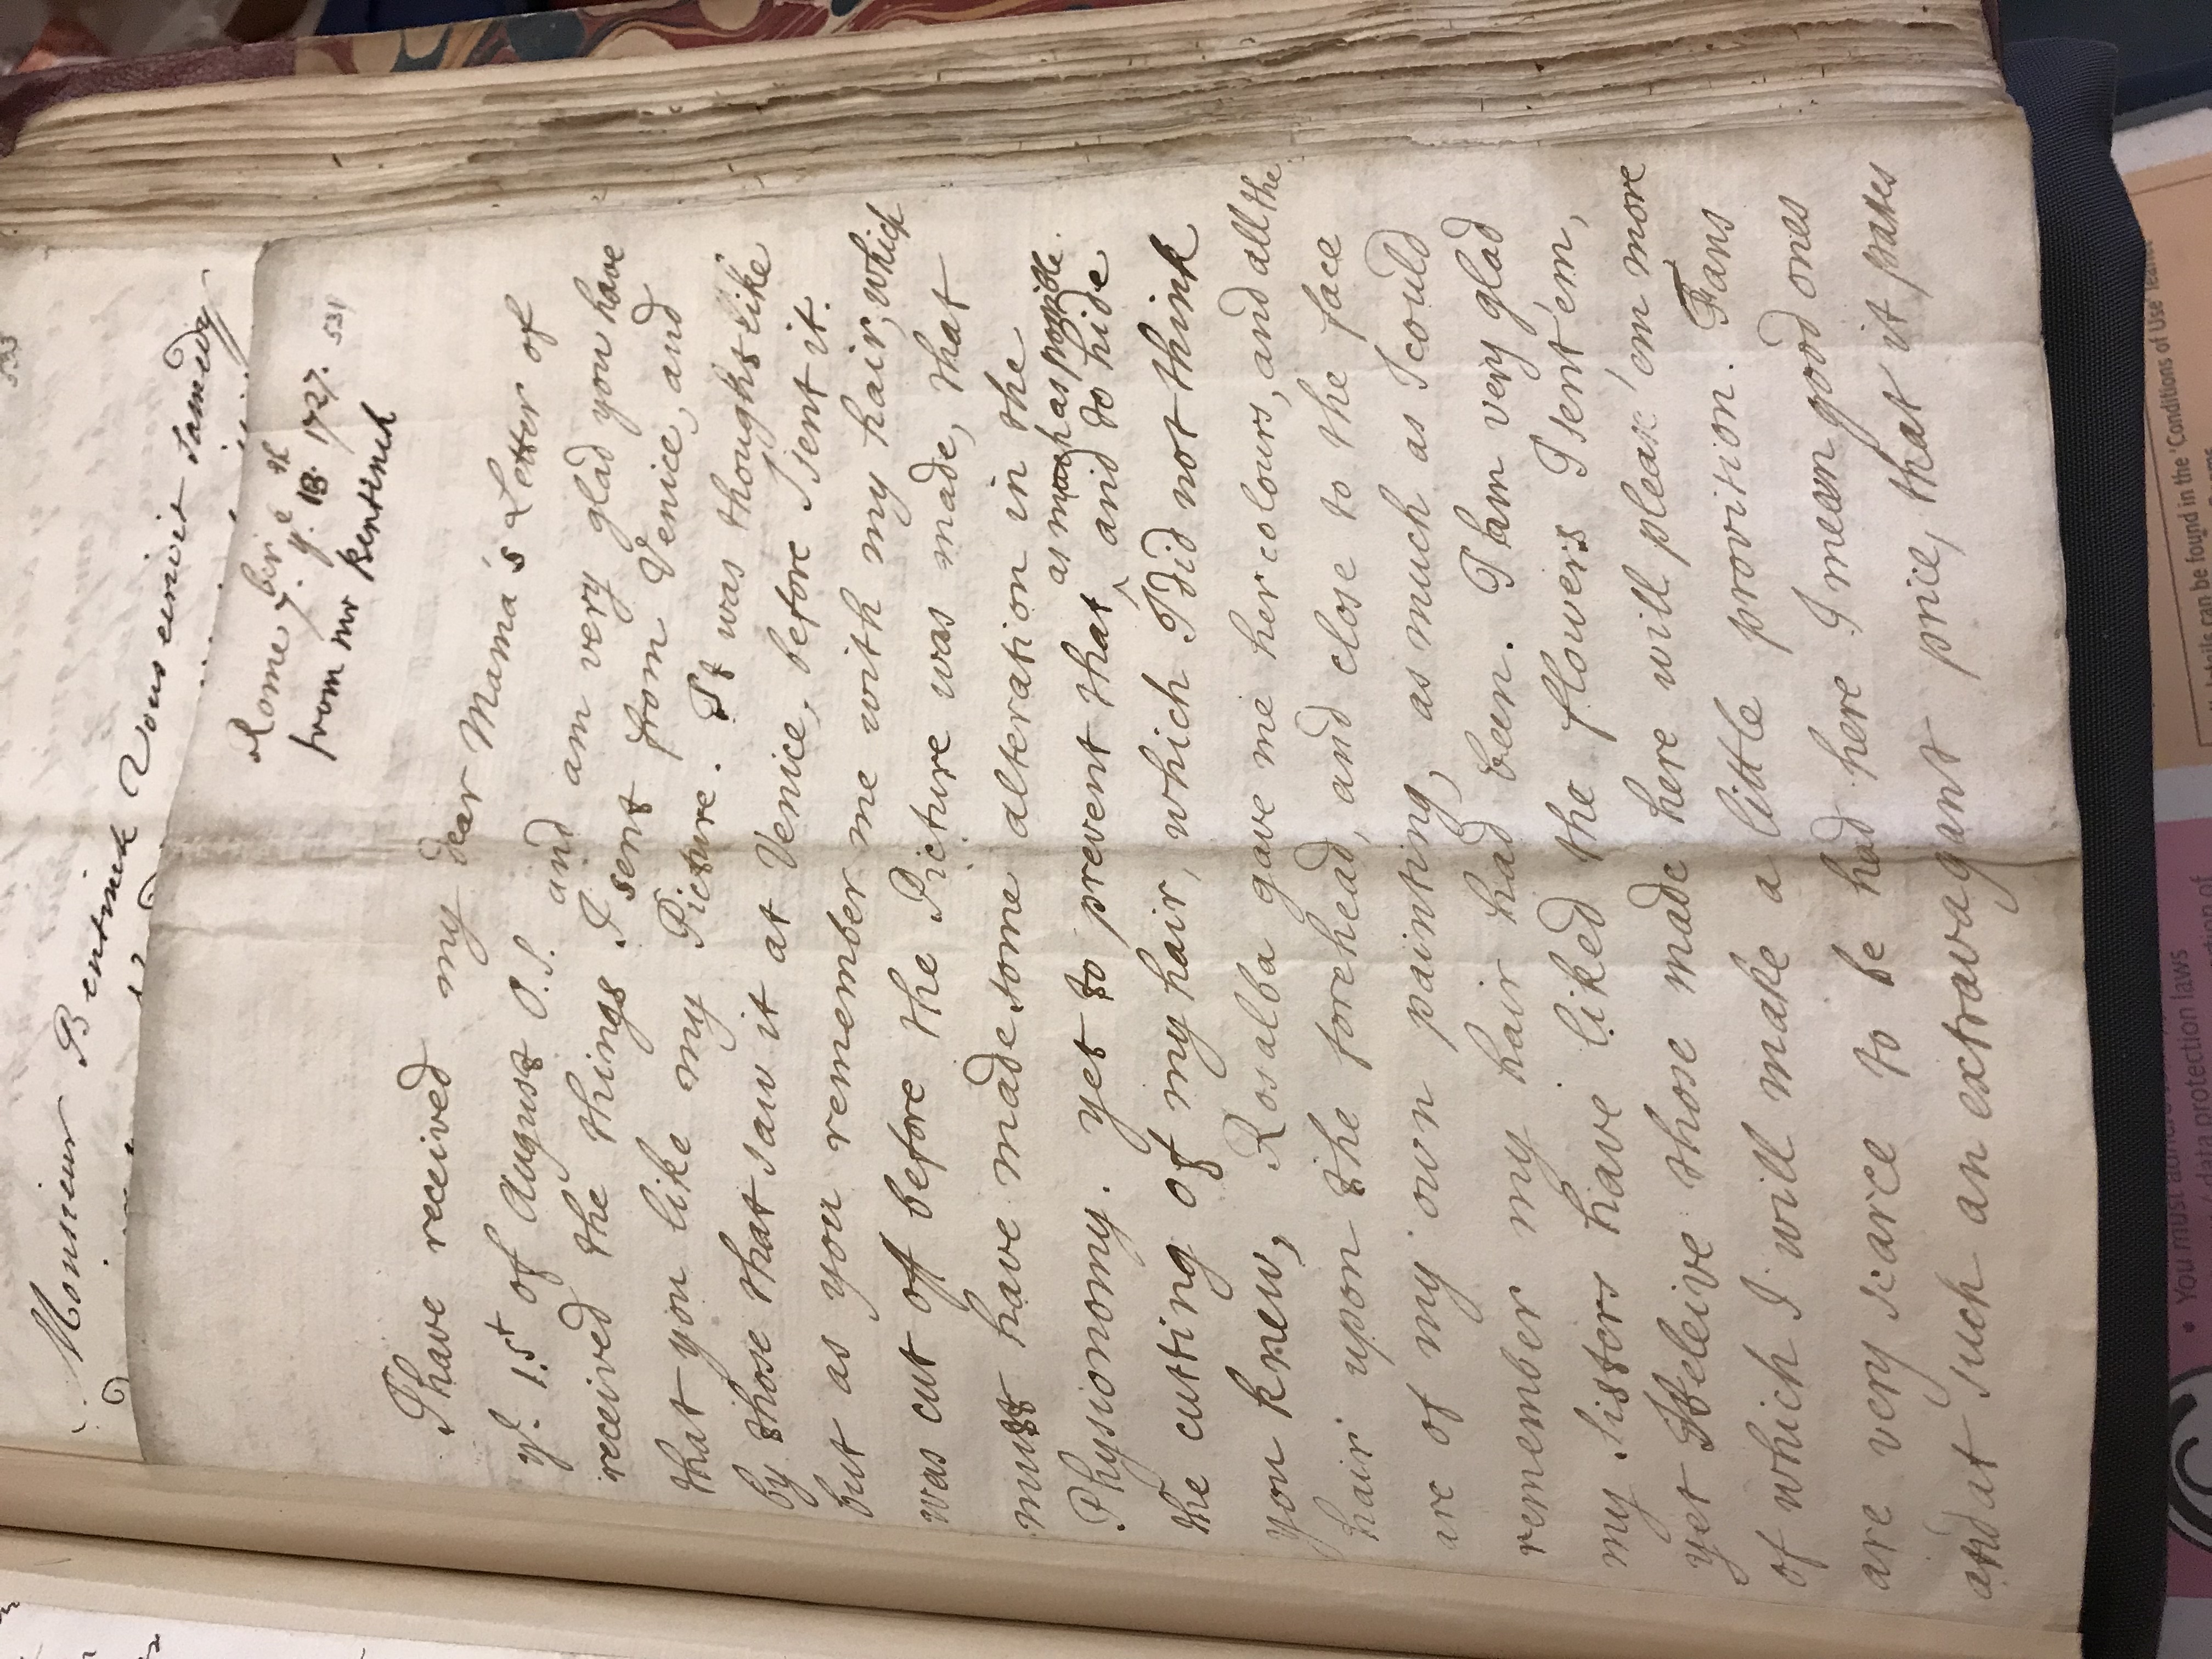 533
Monsieur Bentinck Vous ecrivit Samedy
Rome 7.ber ye. 18.th 1727. 531
from mr Bentinck
I have received my dear Mama's Letter of
ye. 1.st of August O.S. and am very glad you have
received the things I sent from Venice, and
that you like my Picture. It was thought like
by those that saw it at Venice, before I sent it.
but as you remember me with my hair, which
was cut off before the Picture was made, that
must have made some alteration in the
as much as possible.
Physionomy. yet to prevent that ^ and to hide
the cutting of my hair, which I did not think
you knew, Rosalba gave me her colours, and all the
hair upon the forehead, and close to the face
are of my own painting, as much as I could
remember my hair had been. I am very glad
my Sisters have liked the flowers I sent 'em,
yet I beleive those made here will please 'em more
of which I will make a little provision. Fans
are very scarce to be had here I mean good ones
and at such an extravagant price, that it passes
• You must adhere
data protection laws
can be found in the 'Conditions of Use' leaflet